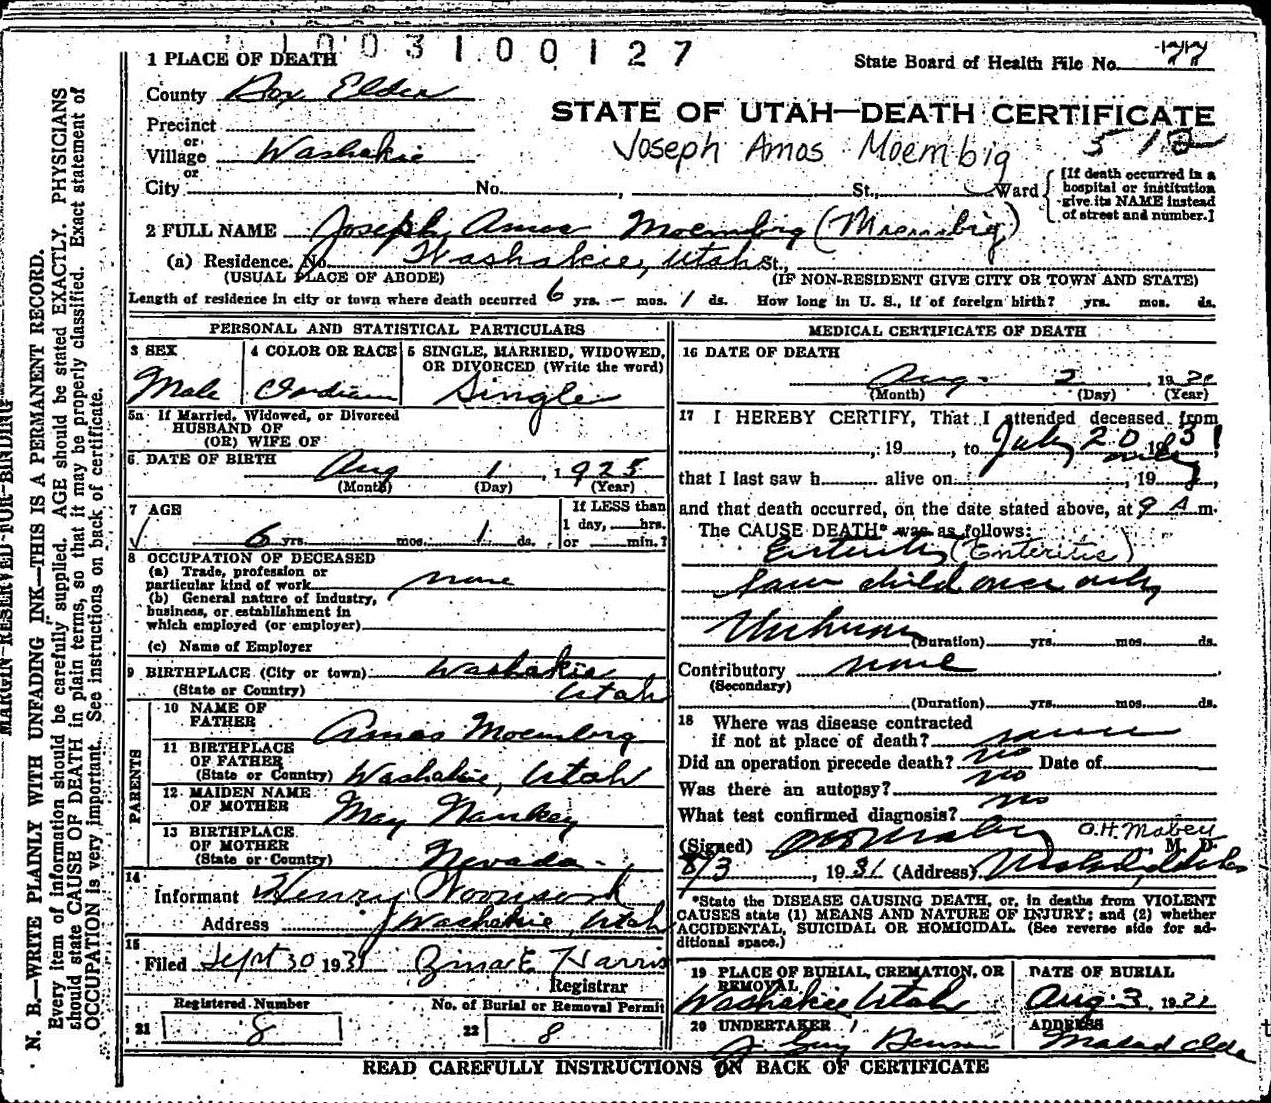 1003100127
1 PLACE OF DEATH
State Board of Health File No. 77
County Box Elder
STATE OF UTAH—DEATH CERTIFICATE
Precinct
Joseph Amos Moembig 512
or
Village Washakie
or
City No. , St., Ward
[If death occurred in a
hospital or institution
give its NAME instead
of street and number.]
2 FULL NAME Joseph Amos Moemberg (Moembig)
(a) Residence. No. Washakie, Utah St.,
(USUAL PLACE OF ABODE) (IF NON-RESIDENT GIVE CITY OR TOWN AND STATE)
Length of residence in city or town where death occurred 6 yrs. – mos. 1 ds. How long in U. S., if of foreign birth? yrs. mos. ds.
PERSONAL AND STATISTICAL PARTICULARS
3 SEX
Male
4 COLOR OR RACE
Indian
5 SINGLE, MARRIED, WIDOWED,
OR DIVORCED (Write the word)
Single
5a If Married, Widowed, or Divorced
HUSBAND OF
(OR) WIFE OF
6 DATE OF BIRTH
Aug 1, 1925
(Month) (Day) (Year)
7 AGE
6 yrs. mos. 1 ds.
If LESS than
1 day, hrs.
or min.?
8 OCCUPATION OF DECEASED
(a) Trade, profession or
particular kind of work none
(b) General nature of industry,
business, or establishment in
which employed (or employer)
(c) Name of Employer
9 BIRTHPLACE (City or town) Washakie
(State or Country) Utah
PARENTS
10 NAME OF
FATHER Amos Moemberg
11 BIRTHPLACE
OF FATHER
(State or Country) Washakie, Utah
12 MAIDEN NAME
OF MOTHER May
13 BIRTHPLACE
OF MOTHER
(State or Country) Nevada
14
Informant Henry Woonsook
Address Washakie, Utah
15
Filed Sept 30 1931 Zina E. Harris
Registrar
Registered Number
21 8
No. of Burial or Removal Permit
22 8
MEDICAL CERTIFICATE OF DEATH
16 DATE OF DEATH
Aug. 2, 1931
(Month) (Day) (Year)
17 I HEREBY CERTIFY, That I attended deceased from
, 19 , to July 20 1931
only
that I last saw h alive on , 19 ,
and that death occurred, on the date stated above, at 9 A. m.
The CAUSE DEATH* was as follows:
Enteritis (Enteritis)
Saw child once only
Unknown
(Duration) yrs. mos. ds.
Contributory none
(Secondary)
(Duration) yrs. mos. ds.
18 Where was disease contracted
if not at place of death? same
Did an operation precede death? no Date of
Was there an autopsy? no
What test confirmed diagnosis? no
(Signed) O.H. Mabey O.H. Mabey M. D.
8/3, 1931 (Address)
*State the DISEASE CAUSING DEATH, or, in deaths from VIOLENT
CAUSES state (1) MEANS AND NATURE OF INJURY; and (2) whether
ACCIDENTAL, SUICIDAL OR HOMICIDAL. (See reverse side for ad-
ditional space.)
19 PLACE OF BURIAL, CREMATION, OR
REMOVAL
Washakie Utah
DATE OF BURIAL
Aug. 3, 1931
20 UNDERTAKER
J. Guy Benson
ADDRESS
Malad Ida
READ CAREFULLY INSTRUCTIONS ON BACK OF CERTIFICATE
MARGIN RESERVED FOR BINDING
N. B.—WRITE PLAINLY WITH UNFADING INK—THIS IS A PERMANENT RECORD.
Every item of information should be carefully supplied. AGE should be stated EXACTLY. PHYSICIANS
should state CAUSE OF DEATH in plain terms, so that it may be properly classified. Exact statement of
OCCUPATION is very important. See instructions on back of certificate.